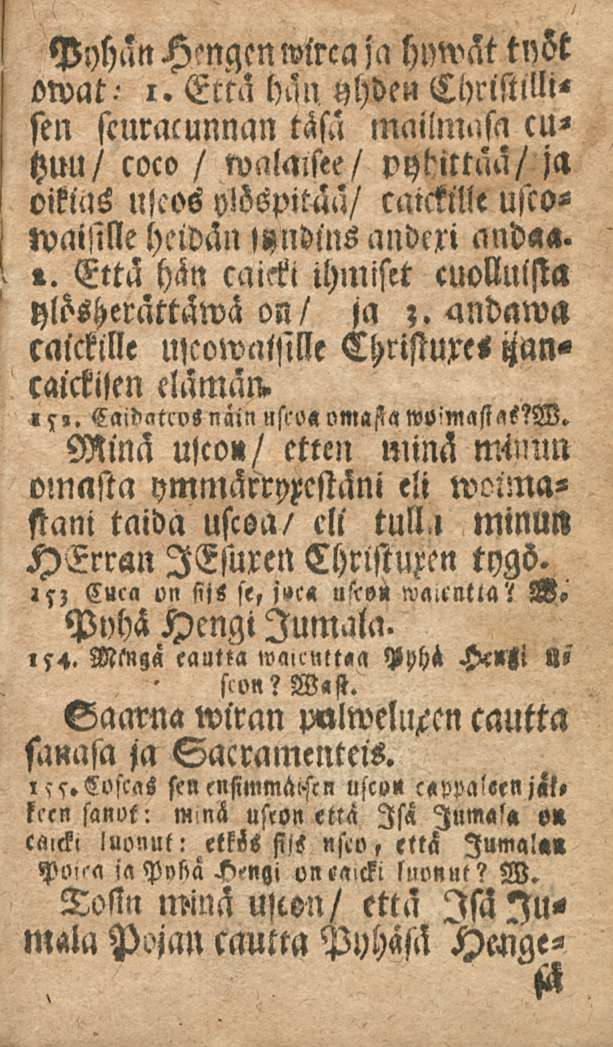 Pyhän Hengen wirca ja hywät työt
owat: 1. Että hän yhden Christilli-
sen seuracunnan täsä mailmasa cu-
tzuu/ coco/ walaisee/ pyhittää/ ja
oikias uscos ylöspitää/ caickille usco-
waisille heidän syndins andexi andaa.
2. Että hän caicki ihmiset cuolluista
ylösherättäwä on/ ja 3. andawa
caickille uscowaisille Christuxes ijan-
caickisen elämän.
152. Taidatcos näin uscoa omasta woimastas? W.
Minä uscon/ etten minä minun
omasta ymmärryxestäni eli woima-
stani taida uscoa/ eli tulla minun
HErran JEsuxen Christuxen tygö.
153 Cuca on sijs se, joca uscon waicuttaa? W.
Pyhä Hengi Jumala.
154. Mingä cautta waicuttaa Pyhä Hengi u-
scon? Wast.
Saarna wiran palweluxen cautta
sanasa ja Sacramenteis.
155. Coscas sen ensimmäisen uscon cappaleen jäl-
keen sanot: minä uscon että Isä Jumala on
caicki luonut: etkös sijs usco, että Jumalan
Poica ja Pyhä Hengi on caicki luonut? W.
Tosin minä uscon/ että Isä Ju-
mala Pojan cautta Pyhäsä Henge-
sä